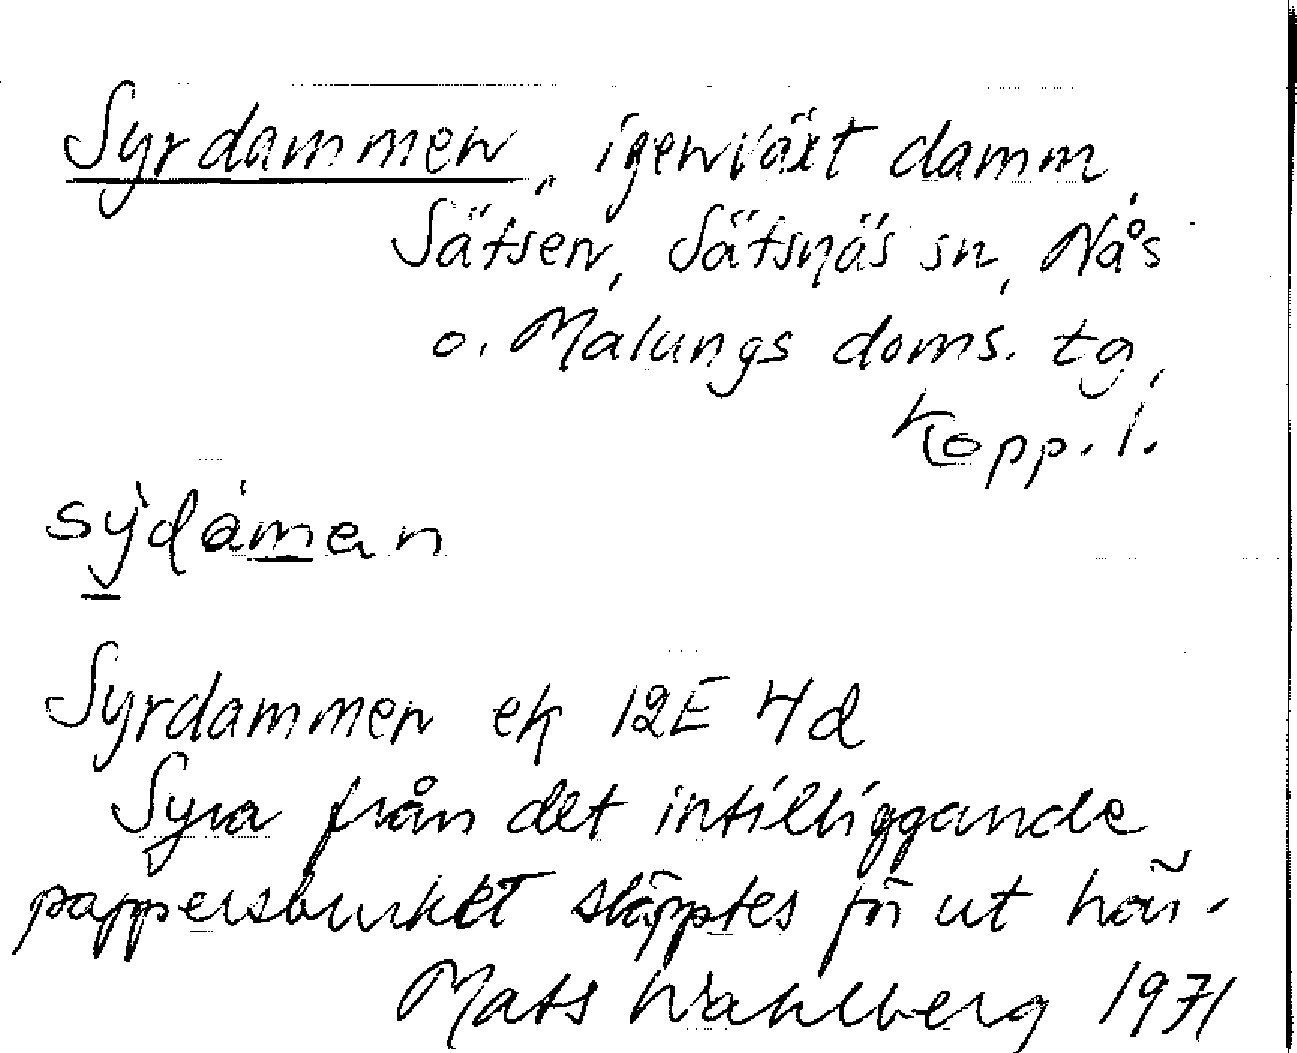 Syrdammen, igenväxt damm,
Sätsen, Sätsnäs sn, Nås
o. Malungs doms. tg,
Kopp. l.
sỳdáman
Syrdammen ek 12E 4d
Syra från det intilliggande
pappersbruket släpptes för ut här.
Mats Wahlberg 1971